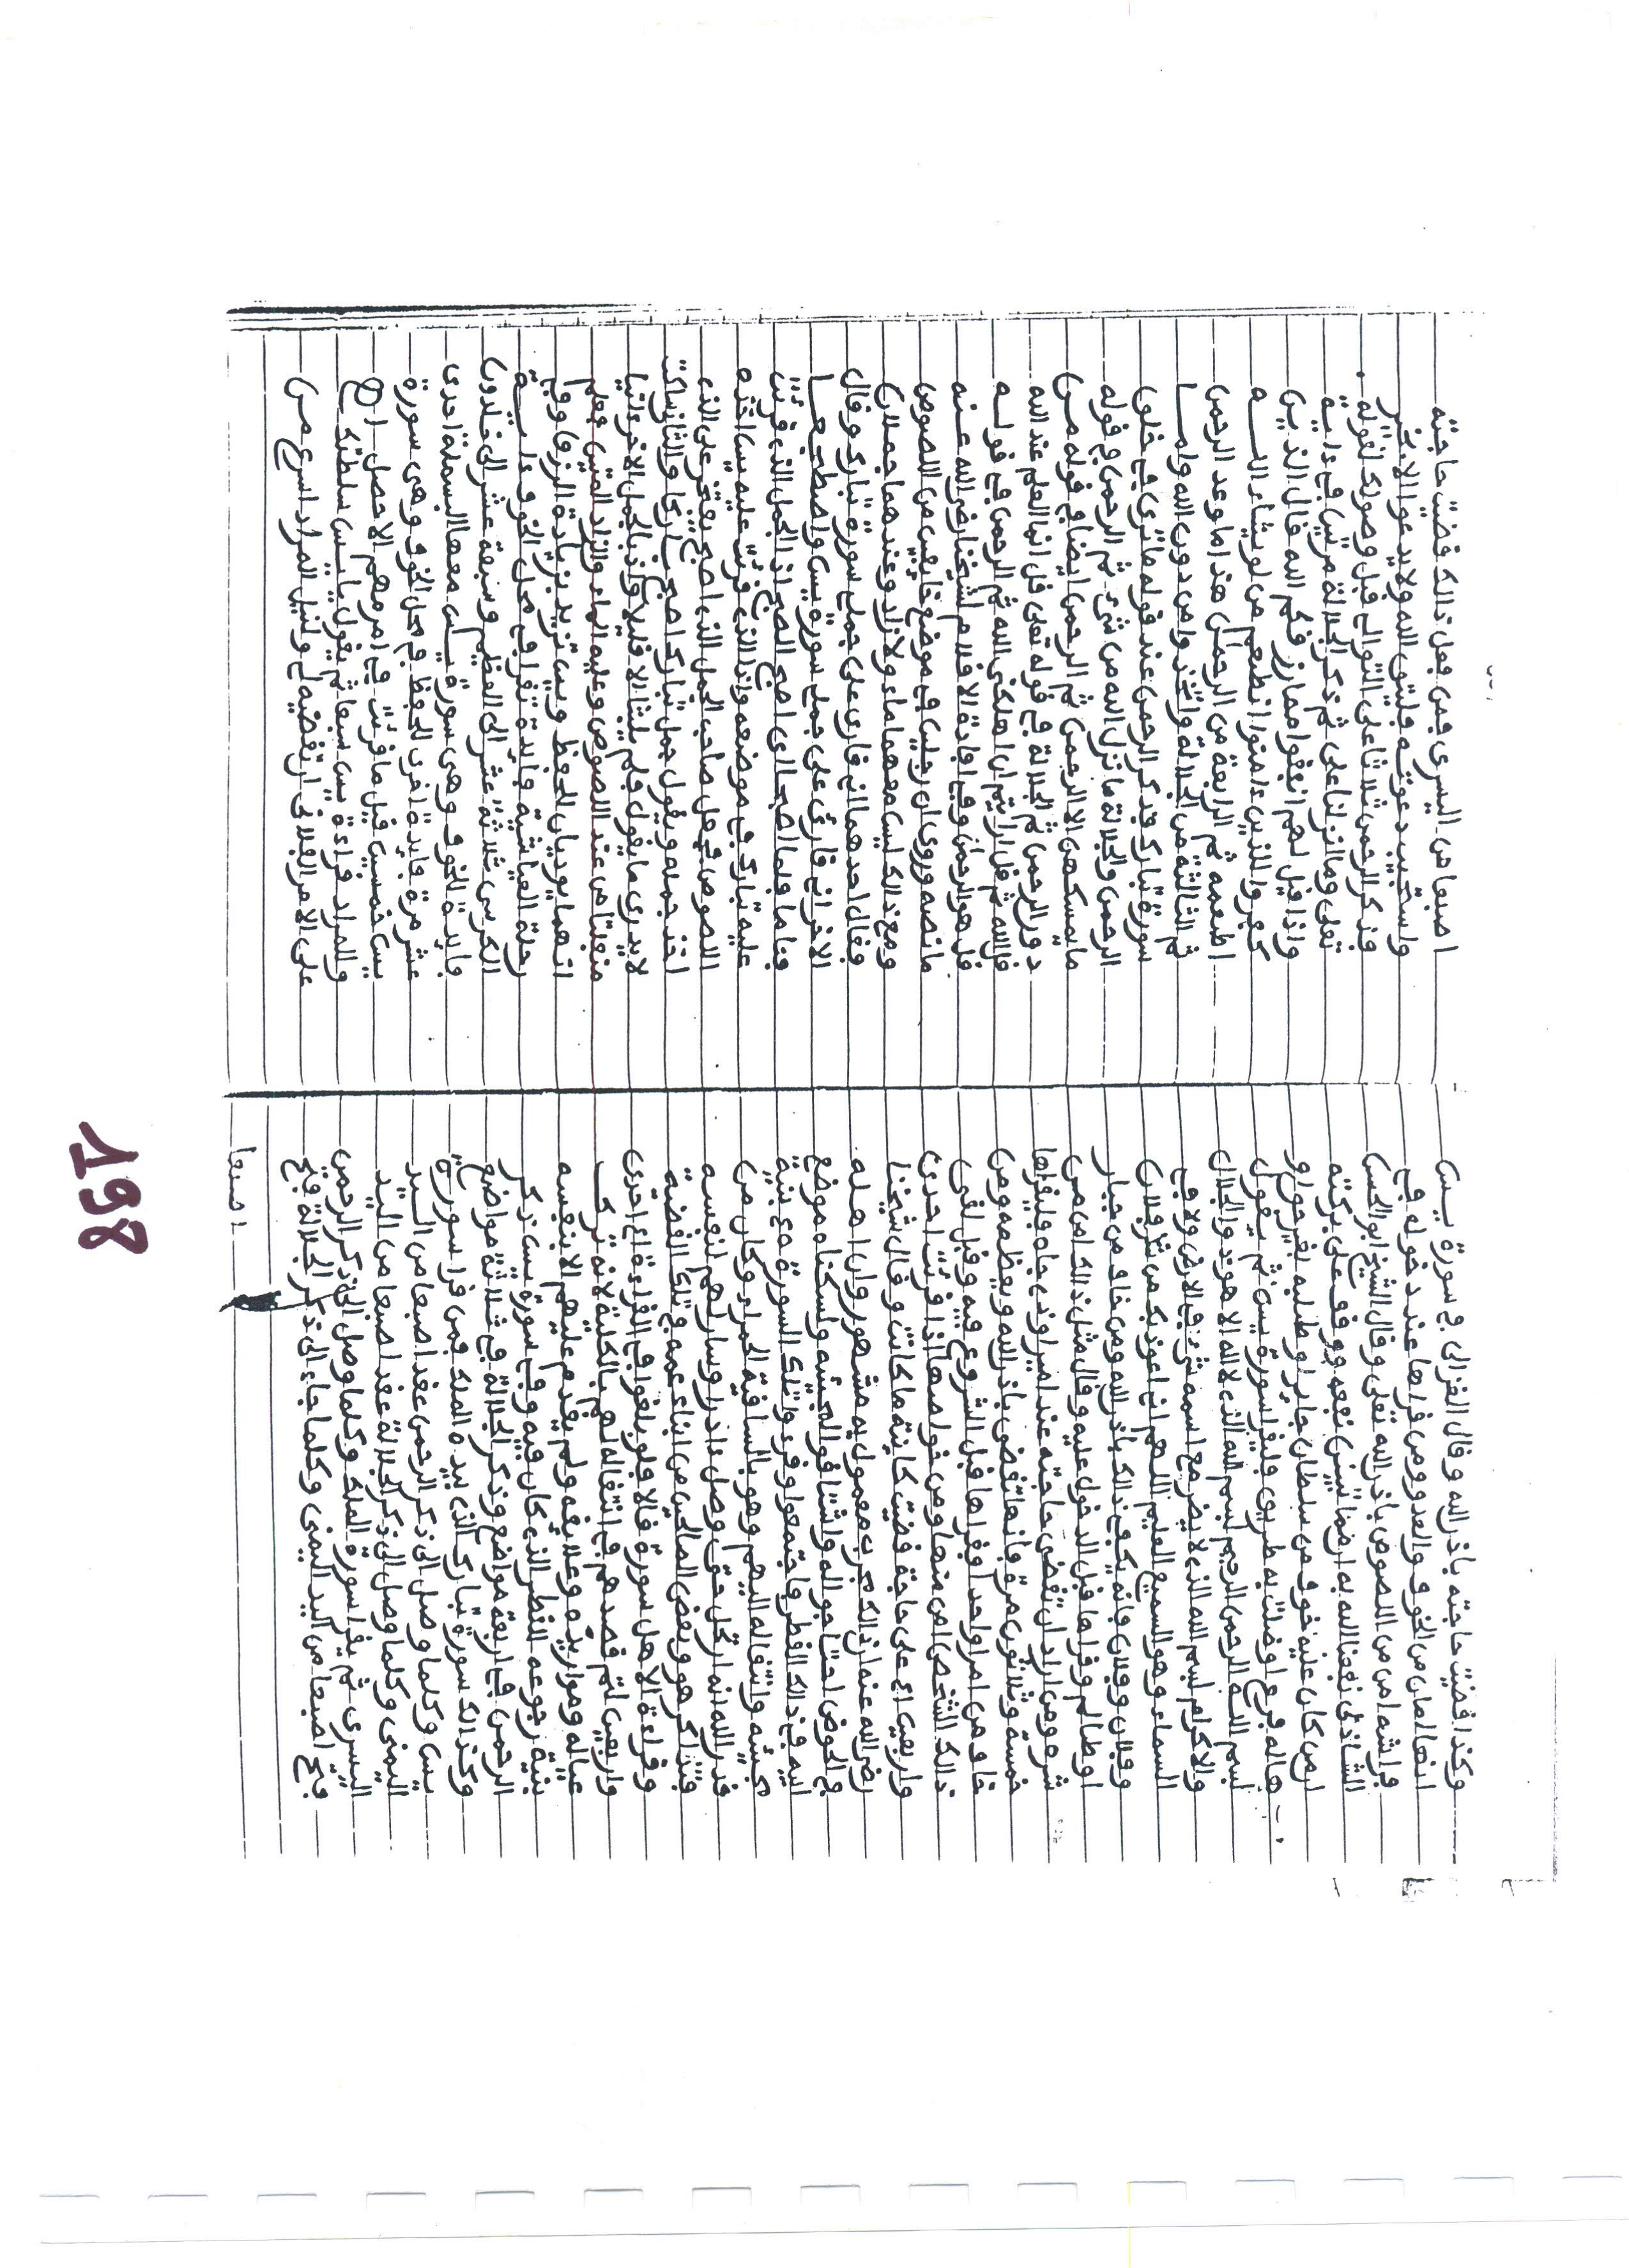 وكذا قضيت حاجته باذن الله وقال الغزالى في سورة يس
انها امان من الخوف والعدو ومن قراها عند دخوله في
فراشه امن من اللصوص باذن الله تعلى وقال الشيخ ابو الحسن
الشاذلى نفعنا الله به نفعه ووقف على بركته
ان من كان عليه خوف من سلطان جاير او طلبه بغير حق او
هاله فزع او ضلت به طريق فليقرا سورة يس ثم يقول
بسم الله الرحمن الرحيم بسم الله الذي لا اله الا هو ذو الجلال
والاكرام بسم الله الذي لا يضر مع اسمه شيء في الارض ولا في
السماء وهو السميع العليم اللهم اني اعوذ بك من شر فلان
وفلان وفلان فانه يكفى ذالك باذن الله ومن خاف من جبار
او ظالم وقراها قبل الدخول عليه وقال مثل ذالك امن من
شره ومن اراد ان تقضى حاجته عند امير او ذى جاه فليقراها
خمسة وثلاثون مرة فانها تقضى باذن الله ويعظمه ومن
خاف من امر واحد فقراها قبل الشروع فيه وقبل لقى
ذالك الشخص امن منها ومن خواصها اذا قرئت احدى
واربعين اي على حاجة قضيت كاينة ما كانت وقال شيخنا
رضي الله عنه ان ذالك مجرب معمول به مشهور وان اهله
والحوض احتاجوا له واشتاقوا لمجيئه واسكناه موضع
اليه في ذالك القطر واجتمعوا وقرءوا تلك السورة بنية
مجيئه وانتقاله اليهم وهو بالساقية الحمراء وكان من
قدر الله انه ارتحل حتى وصل ادرار وسار لهم بنفسه
فتذاكر هو وبعض الصالحين من ابناء عمه في تلك القضية
وقراءة الاهل سورة قالا فلو بلغوا في القراءة احدى
واربعين لتم قصدهم في انتقاله لهم بالكلية لانه ترك
عياله وموارده وعلايقه ولم يقدم عليهم الا بنفسه
بنية رجوعه القطر الذى كان فيه وفي سورة يس ذكر
الرحمن في اربعة مواضع وذكر الجلالة في ثلاثة مواضع
وكذالك سورة تبارك الذى بيده الملك فمن قرا سورة
يس وكلما وصل الى ذكر الرحمن عقد اصبعا من اليد
اليمنى وكلما وصل الى ذكر الجلالة عقد اصبعا من اليد
اليسرى ثم يقرا سورة الملك وكلما وصل الى ذكر الرحمن
فتح اصبعا من اليد اليمنى وكلما جاء الى ذكر الجلالة فتح
اصبعا
اصبعا من اليسرى فمن فعل ذالك قضيت حاجته
واستجيب دعوته فليتق الله ولا يدعوا الا بخير
فذكر الرحمن ثلاثا على التوالي قبل وصولك لقوله
تعلى وما انزلنا على ثم ذكر الجلالة مرتين في ءاية
واذا قيل لهم انفقوا مما رزقكم الله قال الذين
كفروا للذين ءامنوا انطعم من لو يشاء الله
اطعمه ثم الرابعة من الرحمن هذا ما وعد الرحمن
ثم الثالثة من الجلالة واتخذوا من دون الله واما
سورة تبارك فذكر الرحمن عند قوله ما ترى في خلق
الرحمن والجلالة ما نزل الله من شيء ثم الرحمن في قوله
ما يمسكهن الا الرحمن ثم الرحمن ايضا في قوله من
دون الرحمن ثم الجلالة في قوله تعلى قل انما العلم عند الله
قل ارايتم ان اهلكنى الله ثم الرحمن في قوله
قل هو الرحمن وفي افادة الاقلام لشيخنا رضي الله عنه
ما نصه وروى ان رجلين في موضع خايفين من اللصوص
ومع ذالك ليس معهما ماء ولا زاد وعندهما جملان
فقال احدهما انى قارئ على جملى سورة تبارك وقال
الاخر انى قارئ على جملى سورة يس واضطجعا
فناما فلما اصبحا راى اصح الصبح اذا الجمل الذى قرئت
عليه تبارك في موضعه واذا الذى قرئت عليه يس اخذه
اللصوص فجعل صاحب الجمل الذى اصبح يفتخر على الذى
اخذ جمله ويقول جمل تبارك اصبح باركا والثانى ساكت
لا يدرى ما يقول فلم يلبثا الا قليلا واذا بالجمل الاخر
منفلتا من عند اللصوص وعليه الماء والزاد فعلم
انهما يوديان للحفظ ويس تزيد بزيادة الرزق وفي
رحلة العياشى فايدة تقرا في محل الخوف ءاية
الكرسى ثلاثة عشر الى العظيم وسبعة عشر الى خلدون
فايدة للخوف وهى سورة يس معها البسملة احدى
عشر مرة فايدة اخرى للحفظ في محل الخوف وهى سورة
يس خمسين قيل ما قرئت في امر مهم الا حصل
والمراد قراءة يس سبعا ثم يقول يا يس سلطتك
على الامر الفلانى ان تقضيه لى ولنيل المراد اسرع من
198